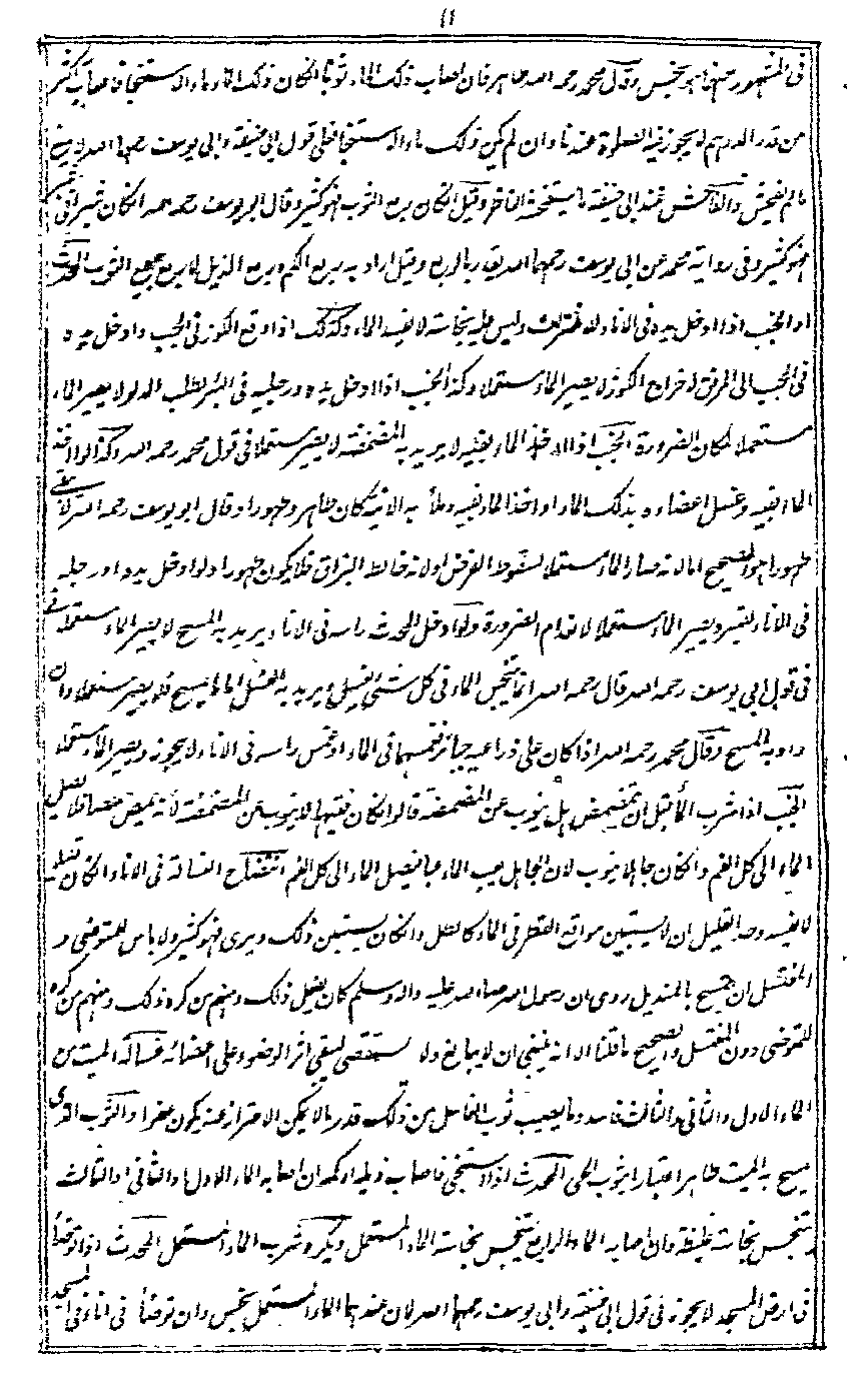 ١١
فى المشهور عنهما هو نجس وقال محمد رحمه الله طاهر فان اصاب ذلك الماء ثوبا ان كان ذلك الماء ماء الاستنجاء فاصاب اكثر
من قدر الدرهم لا يجوز فيه الصلوة عندنا وان لم يكن ذلك ماء الاستنجاء فعلى قول ابى حنيفة وابى يوسف رحمهما الله لا يمنع
مالم يفحش والفاحش عند ابى حنيفة ما يستفحشه الناظر وقيل ان كان ربع الثوب فهو كثير وقال ابو يوسف رحمه الله ان كان شبرا فى شبر
فهو كثير وفى رواية محمد عن ابى يوسف رحمهما الله يقدر بالربع وقيل اراد به ربع الكم وربع الذيل لا ربع جميع الثوب المحدث
او الجنب اذا ادخل يده فى الاناء للاغتراف وليس عليه نجاسة لا يفسد الماء وكذلك اذا وقع الكوز فى الحب وادخل يده
فى الحب الى المرفق لاخراج الكوز لا يصير الماء مستعملا وكذا الجنب اذا ادخل يده ورجليه فى البئر لطلب الدلو لا يصير الماء
مستعملا لمكان الضرورة الجنب اذا اخذ الماء بفيه لا يريد به المضمضة لا يصير مستعملا فى قول محمد رحمه الله وكذا لو اخذ
الماء بفيه وغسل اعضاءه بذلك الماء او اخذ الماء بفيه وملأ به الانية كان طاهرا وطهورا وقال ابو يوسف رحمه الله لا يبقى
طهورا هو الصحيح اما لانه صار الماء مستعملا لسقوط الفرض او لانه خالطه البزاق فلا يكون طهورا ولو ادخل يده او رجله
فى الاناء للتبرد يصير الماء مستعملا لانعدام الضرورة ولو ادخل المحدث راسه فى الاناء يريد به المسح لا يصير الماء مستعملا
فى قول ابى يوسف رحمه الله قال رحمه الله انما ينجس الماء فى كل شئ يغسل يريد به الغسل اما ما يمسح فلا يصير مستعملا وان
اراد به المسح وقال محمد رحمه الله اذا كان على ذراعيه جبائر فغمسها فى الماء او غمس راسه فى الاناء لا يجوز ويصير الماء مستعملا
الجنب اذا شرب الماء قبل ان يتمضمض هل ينوب عن المضمضة قالوا ان كان فقيها لا ينوب عن المضمضة لانه يمص مصا فلا يصل
الماء الى كل الفم وان كان جاهلا ينوب لان الجاهل يعب الماء عبا فيصل الماء الى كل الفم انتضاح الغسالة فى الاناء ان كان قليلا
لا يفسد وحد القليل ان لا يستبين مواقع القطر فى الماء كالطل وان كان يستبين ذلك ويرى فهو كثير ولا باس للمتوضى و
المغتسل ان يتمسح بالمنديل روى ان رسول الله صلى الله عليه واله وسلم كان يفعل ذلك ومنهم من كره ذلك ومنهم من كره
للمتوضى دون المغتسل والصحيح ما قلنا الا انه ينبغى ان لا يبالغ ولا يستقصى ليبقى اثر الوضوء على اعضائه غسالة الميت من
الماء الاول والثانى والثالث فاسد وما يصيب ثوب الغاسل من ذلك قدر ما لا يمكن الاحتراز عنه يكون عفوا والثوب الذى
يمسح به الميت طاهر اعتبارا بثوب الحى المحدث اذا استنجى فاصاب ذيله او كمه ان اصابه الماء الاول والثانى والثالث
يتنجس نجاسة غليظة وان اصابه الماء الرابع يتنجس نجاسة الماء المستعمل ويكره شرب الماء المستعمل المحدث اذا توضأ
فى ارض المسجد لا يجوز فى قول ابى حنيفة وابى يوسف رحمهما الله لان عندهما الماء المستعمل نجس وان توضأ فى اناء فى المسجد